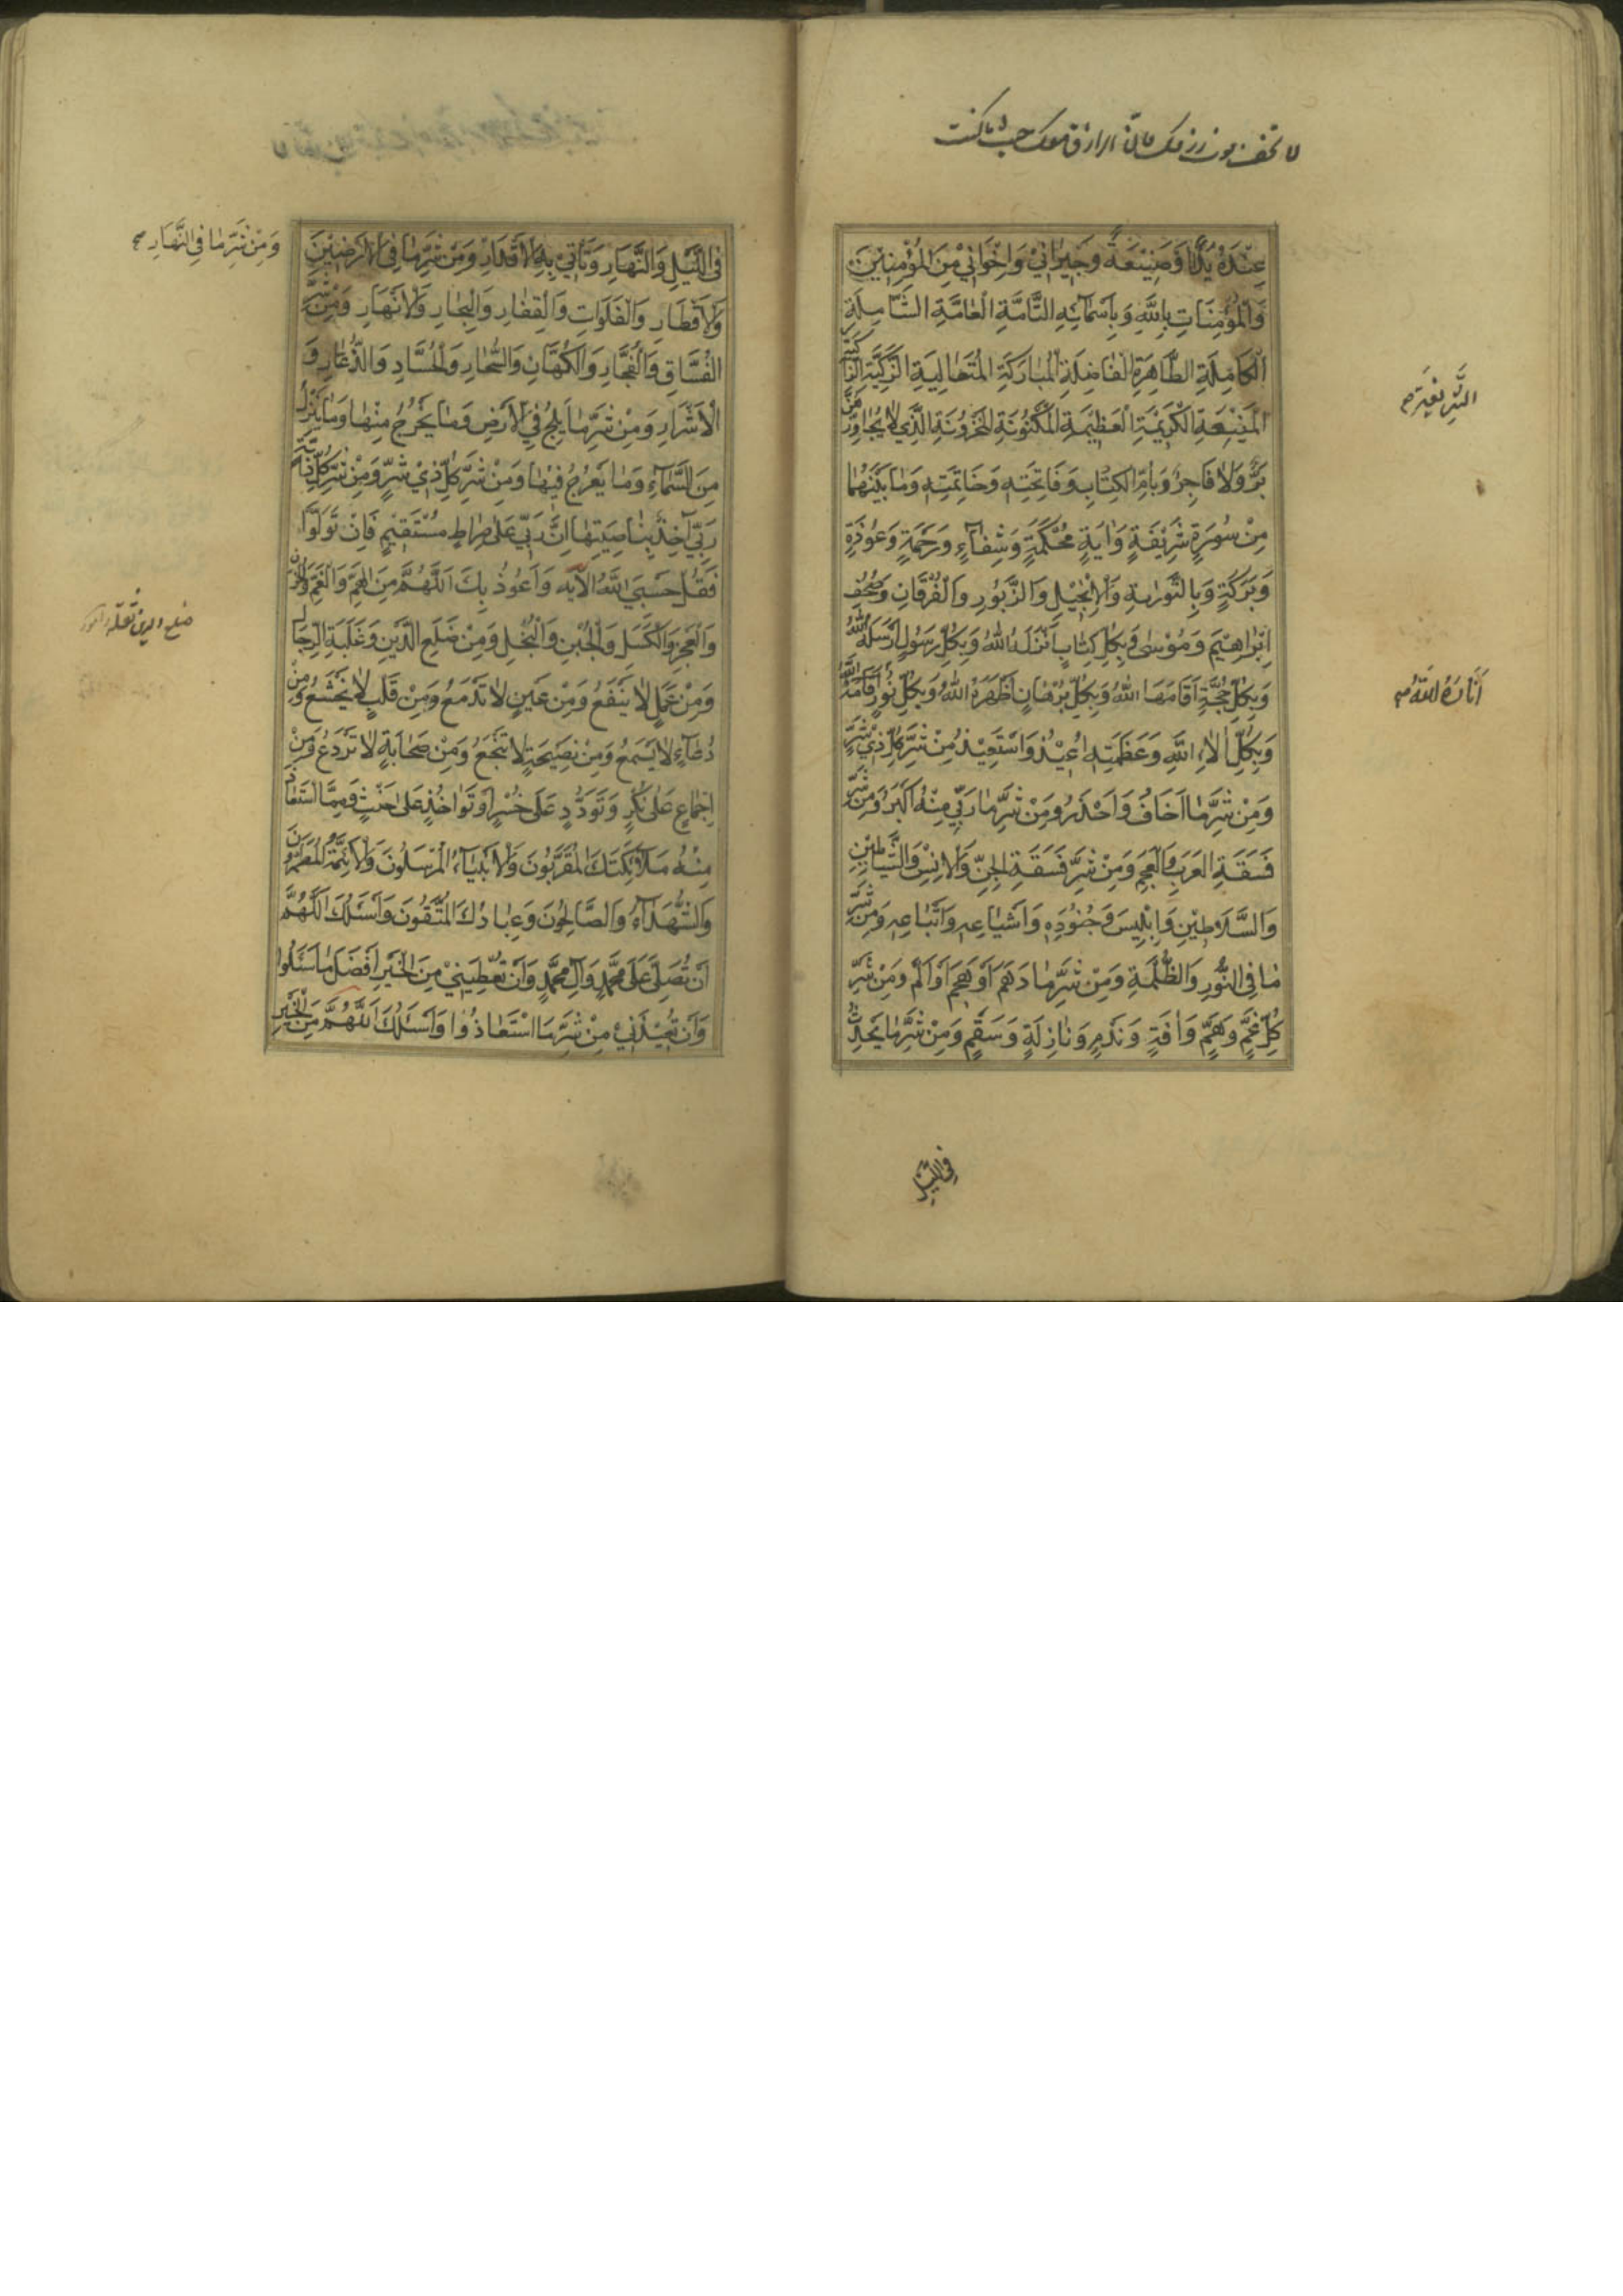 عِنْدَهُ يَدًا وَصَنِيْعَةً وَجِيْرٰانِيْ وَاِخْوٰانِيْ مِنَ الْمُؤْمِنِيْنَ
وَالْمُؤْمِنٰاتِ بِاللهِ وَبِاَسْمٰائِهِ التّٰامَّةِ الْعٰامَّةِ الشّٰامِلَةِ
الْكٰامِلَةِ الطّٰاهِرَةِ الْفٰاضِلَةِ الْمُبٰارَكَةِ الْمُتَعٰالِيَةِ الزَّكِيَّةِ الزّٰاكِيَةِ
الْمَنِيْعَةِ الْكَرِيْمَةِ الْعَظِيْمَةِ الْمَكْنُونَةِ الْمَخْزُونَةِ الَّذِي لٰا يُجٰاوِزُهُنَّ
بَرٌّ وَلٰا فٰاجِرٌ وَبِاُمِّ الْكِتٰابِ وَفٰاتِحَتِهِ وَخٰاتِمَتِهِ وَمٰا بَيْنَهُمٰا
مِنْ سُورَةٍ شَرِيْفَةٍ وَاٰيَةٍ مُحْكَمَةٍ وَشِفٰاءٍ وَرَحْمَةٍ وَعُوْذَةٍ
وَبَرَكَةٍ وَبِالتَّوْرٰيةِ وَالْاِنْجِيْلِ وَالزَّبُوْرِ وَالْفُرْقٰانِ وَصُحُفِ
اِبْرٰاهِيْمَ وَمُوْسٰى وَبِكُلِّ كِتٰابٍ اَنْزَلَهُ اللهُ وَبِكُلِّ رَسُولٍ اَرْسَلَهُ اللهُ
وَبِكُلِّ حُجَّةٍ اَقٰامَهَا اللهُ وَبِكُلِّ بُرْهٰانٍ اَظْهَرَهُ اللهُ وَبِكُلِّ نُوْرٍ اَقٰامَهُ اللهُ
وَبِكُلِّ اٰلٰاءِ اللهِ وَعَظَمَتِهِ اُعِيْذُ وَاَسْتَعِيْذُ مِنْ شَرِّ كُلِّ ذِيْ شَرٍّ
وَمِنْ شَرِّ مٰا اَخٰافُ وَاَحْذَرُ وَمِنْ شَرِّ مٰا رَبِّي مِنْهُ اَكْبَرُ وَمِنْ شَرِّ
فَسَقَةِ الْعَرَبِ وَالْعَجَمِ وَمِنْ شَرِّ فَسَقَةِ الْجِنِّ وَالْاِنْسِ وَالشَّيٰاطِيْنِ
وَالسَّلٰاطِيْنِ وَاِبْلِيْسَ وَجُنُوْدِهِ وَاَشْيٰاعِهِ وَاَتْبٰاعِهِ وَمِنْ شَرِّ
مٰا فِي النُّورِ وَالظُّلْمَةِ وَمِنْ شَرِّ مٰا دَهَمَ اَوْ هَجَمَ اَوْ اَلَمَّ وَمِنْ شَرِّ
كُلِّ غَمٍّ وَهَمٍّ وَاٰفَةٍ وَنَدَمٍ وَنٰازِلَةٍ وَسَقَمٍ وَمِنْ شَرِّ مٰا يَحْدُثُ
اَنٰارَهُ اللهُ
فِي اللَّيْلِ
وَمِنْ شَرِّ مٰا فِي النَّهٰارِ صح
فِي اللَّيْلِ وَالنَّهٰارِ وَتَأْتِي بِهِ الْاَقْدٰارُ وَمِنْ شَرِّ مٰا فِي الْاَرَضِيْنَ
وَالْاَقْطٰارِ وَالْفَلَوٰاتِ وَالْقِفٰارِ وَالْبِحٰارِ وَالْاَنْهٰارِ وَمِنْ شَرِّ
الْفُسّٰاقِ وَالْفُجّٰارِ وَالْكُهّٰانِ وَالسُّحّٰارِ وَالْحُسّٰادِ وَالذُّعّٰارِ وَ
الْاَشْرٰارِ وَمِنْ شَرِّ مٰا يَلِجُ فِي الْاَرْضِ وَمٰا يَخْرُجُ مِنْهٰا وَمٰا يَنْزِلُ
مِنَ السَّمٰاءِ وَمٰا يَعْرُجُ فِيْهٰا وَمِنْ شَرِّ كُلِّ ذِيْ شَرٍّ وَمِنْ شَرِّ كُلِّ دٰابَّةٍ
رَبِّي اٰخِذٌ بِنٰاصِيَتِهٰا اِنَّ رَبِّي عَلٰى صِرٰاطٍ مُسْتَقِيْمٍ فَاِنْ تَوَلَّوْا
فَقُلْ حَسْبِيَ اللهُ الْاٰيه وَاَعُوْذُ بِكَ اللّٰهُمَّ مِنَ الْهَمِّ وَالْغَمِّ وَالْحُزْنِ
وَالْعَجْزِ وَالْكَسَلِ وَالْجُبْنِ وَالْبُخْلِ وَمِنْ ضَلَعِ الدَّيْنِ وَغَلَبَةِ الرِّجٰالِ
وَمِنْ عَمَلٍ لٰا يَنْفَعُ وَمِنْ عَيْنٍ لٰا تَدْمَعُ وَمِنْ قَلْبٍ لٰا يَخْشَعُ وَمِنْ
دُعٰاءٍ لٰا يُسْمَعُ وَمِنْ نَصِيْحَةٍ لٰا تَنْجَعُ وَمِنْ صَحٰابَةٍ لٰا تَرْدَعُ وَمِنْ
اِجْمٰاعٍ عَلٰى نُكْرٍ وَتَوَدُّدٍ عَلٰى خُسْرٍ اَوْ تَوٰاخُذٍ عَلٰى خُبْثٍ وَمِمَّا اسْتَعٰاذَ
مِنْهُ مَلٰائِكَتُكَ الْمُقَرَّبُونَ وَالْاَنْبِيٰاءُ الْمُرْسَلُونَ وَالْاَئِمَّةُ الْمُطَهَّرُونَ
وَالشُّهَدٰاءُ وَالصّٰالِحُونَ وَعِبٰادُكَ الْمُتَّقُونَ وَاَسْئَلُكَ اللّٰهُمَّ
اَنْ تُصَلِّيَ عَلٰى مُحَمَّدٍ وَاٰلِ مُحَمَّدٍ وَاَنْ تُعْطِيَنِيْ مِنَ الْخَيْرِ اَفْضَلَ مٰا سَئَلُوا
وَاَنْ تُعِيْذَنِيْ مِنْ شَرِّ مَا اسْتَعٰاذُوا وَاَسْئَلُكَ اللّٰهُمَّ مِنَ الْخَيْرِ